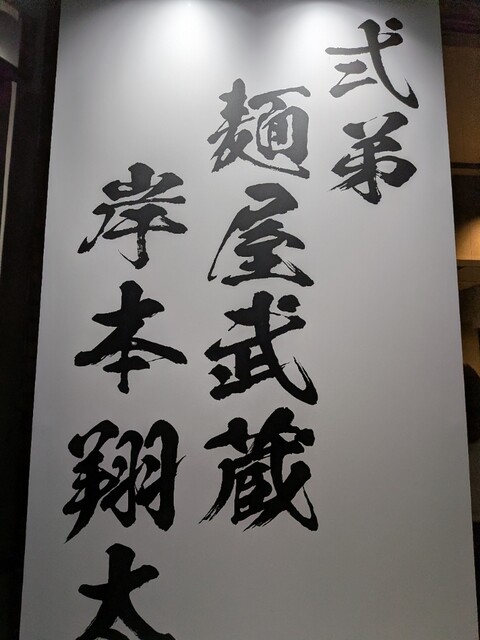 弐弟
麺屋武蔵
岸本翔太